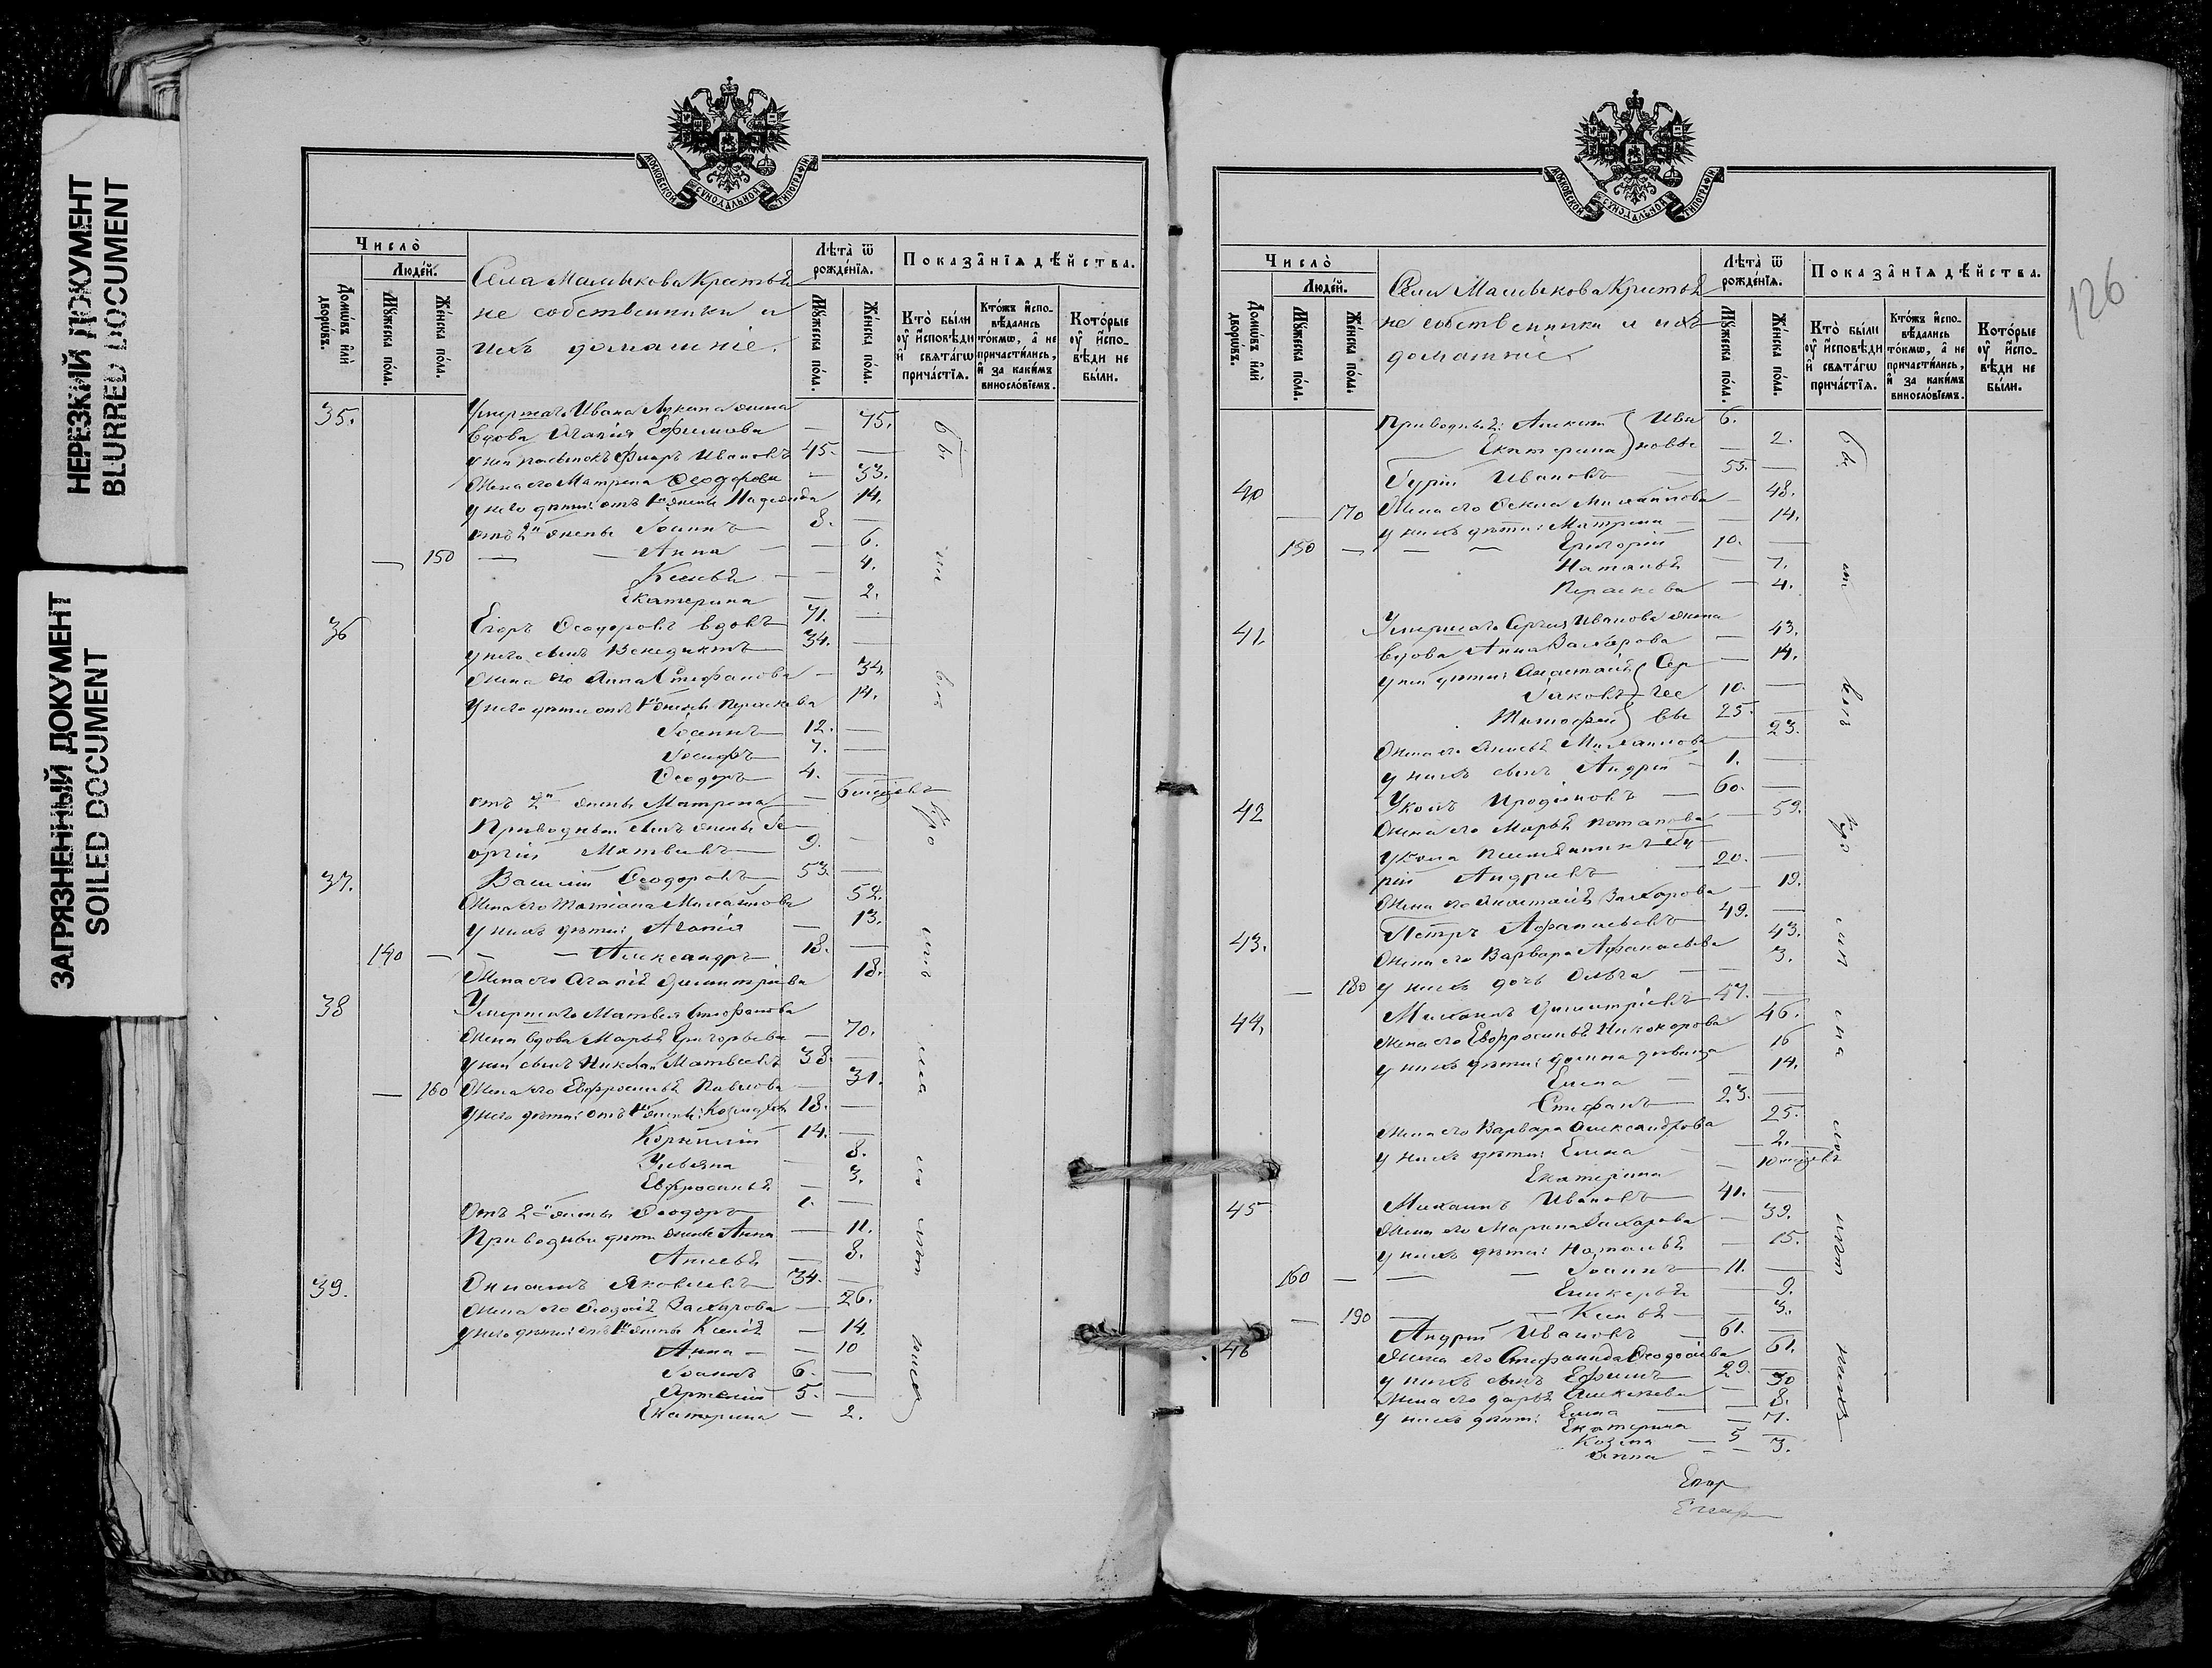 НЕРЕЗКИЙ ДОКУМЕНТ
BLURRED DOCUMENT
ЗАГРЯЗНЕННЫЙ ДОКУМЕНТ
SOILED DOCUMENT
МОСКОВСКОЙ СУНОДАЛЬНОЙ ТИПОГРАФІИ
Число̀
Люде́й.
Домѡ́въ и҆лѝ дворѡ́въ.
Мꙋ́жеска по́ла.
Же́нска по́ла.
Села Малыкова Крестья
не собственники и
ихъ домашніе.
Лѣта̀ ѿ рожде́нїѧ.
Мꙋ́жеска по́ла.
Же́нска по́ла.
Показа̑нїѧ дѣ́йства.
Кто̀ бы́ли оу҆ и҆сповѣ́ди и҆ свѧта́гѡ прича́стїѧ.
Кто́жъ и҆спо-вѣ́дались то́кмѡ, а҆ не причасти́лись, и҆ за каки́мъ винослѡ́вїемъ.
Кото́рые оу҆ и҆спо-вѣ́ди не бы́ли.
35. Умершаго Ивана Лукина жена
вдова Агапія Ефимова — 75.
у ней пасынокъ Ѳиоръ Ивановъ 45. —
Жена его Матрена Ѳеодорова — 33.
у него дѣти: отъ 1й жены Надежда 14.
отъ 2й жены Іоаннъ 8. —
— 150 — — Анна — — 6.
Ксенья — — 4.
Екатерина — 2.
36 Егоръ Ѳеодоровъ вдовъ 71. —
у него сынъ Венедиктъ 34. —
Жена его Анна Стефанова — 34.
у него дѣти отъ 1й жены Параскева 14.
Іоаннъ 12. —
Іосифъ 7. —
Ѳеодоръ 4. —
отъ 2й жены Матрена — 6 месяцевъ
Приводный сынъ жены Ге-
оргій Матвѣевъ 9. —
37. Василій Ѳеодоровъ 53. —
Жена его Татіана Михайлова 52.
у нихъ дѣти: Агапія — 13.
140 — — — Александръ 18. —
Жена его Агапія Димитріева 18.
38 Умершаго Матвея Стефанова
Жена вдова Марья Григорьева — 70.
у ней сынъ Николай Матвеевъ 38. —
— 160 Жена его Евфросинья Павлова — 31.
у него дѣти: отъ 1й жены: Козма 18. —
Корнилій 14. —
Ульяна — 8.
Евфросинья — 3.
Отъ 2й жены Ѳеодоръ 1. —
Приводныя дѣти жены Анна — 11.
Анисья — 8.
39. Яковлевъ 34. —
Жена его Захарова — 26.
у него дѣти: отъ 1й жены Ксенія — 14.
Анна — — 10
Іоаннъ 6. —
Артемій 5. —
Екатерина — 2.
МОСКОВСКОЙ СУНОДАЛЬНОЙ ТИПОГРАФІИ
126
Число̀
Люде́й.
Домѡ́въ и҆лѝ дворѡ́въ.
Мꙋ́жеска по́ла.
Же́нска по́ла.
Села Малыкова Крестья
не собственники и ихъ
домашніе
Лѣта̀ ѿ рожде́нїѧ.
Мꙋ́жеска по́ла.
Же́нска по́ла.
Показа̑нїѧ дѣ́йства.
Кто̀ бы́ли оу҆ и҆сповѣ́ди и҆ свѧта́гѡ прича́стїѧ.
Кто́жъ и҆спо-вѣ́дались то́кмѡ, а҆ не причасти́лись, и҆ за каки́мъ винослѡ́вїемъ.
Кото́рые оу҆ и҆спо-вѣ́ди не бы́ли.
Приводныя: Ива 6.
Екатерина новы — 2.
40 Гурій Ивановъ 55. —
— 170 Жена его Михайлова — 48.
у нихъ дѣти: Матрена — 14.
150 — — — Григорій 10. —
Наталья — 7.
Параскева — 4.
41, Умершаго Сергія Иванова жена
вдова Анна Захарова — 43.
у ней дѣти: Анастасія Сер — 14.
Іаковъ гее 10. —
Тимофей вы 25. —
Жена его Анисья Михайлова — 23.
у нихъ сынъ Андрей 1. —
42 60. —
Жена его Марья Потапова — 59.
рій Андреевъ 20. —
Жена его Анастасія Захарова — 19.
43. Петръ Афанасьевъ 49. —
Жена его Варвара Афанасьева 43.
— 180 у нихъ дочь Ольга — — 3.
44, Михаилъ Димитріевъ 47. —
Жена его Евфросинья Никонорова 46.
у нихъ дѣти: Домна дѣвица 16
Елена — 14.
Стефанъ 23. —
Жена его Варвара Александрова 25.
у нихъ дѣти: Елена — 2.
Екатерина — 10 месяцевъ
45 Михаилъ Ивановъ 41. —
Жена его Марина Захарова — 39.
у нихъ дѣти: Наталья — 15.
160 — — — Іоаннъ 11. —
Гликерья — 9.
— 190 — — Ксенья — — 3.
46 Андрей Ивановъ 61. —
Жена его Стефанида Ѳеодосіева 61.
у нихъ сынъ Ефимъ 29. —
Жена его Дарья Алексеева — 30
у нихъ дѣти: Елена — 8.
Екатерина — 7.
Козма — 5 —
Анна — — 3.